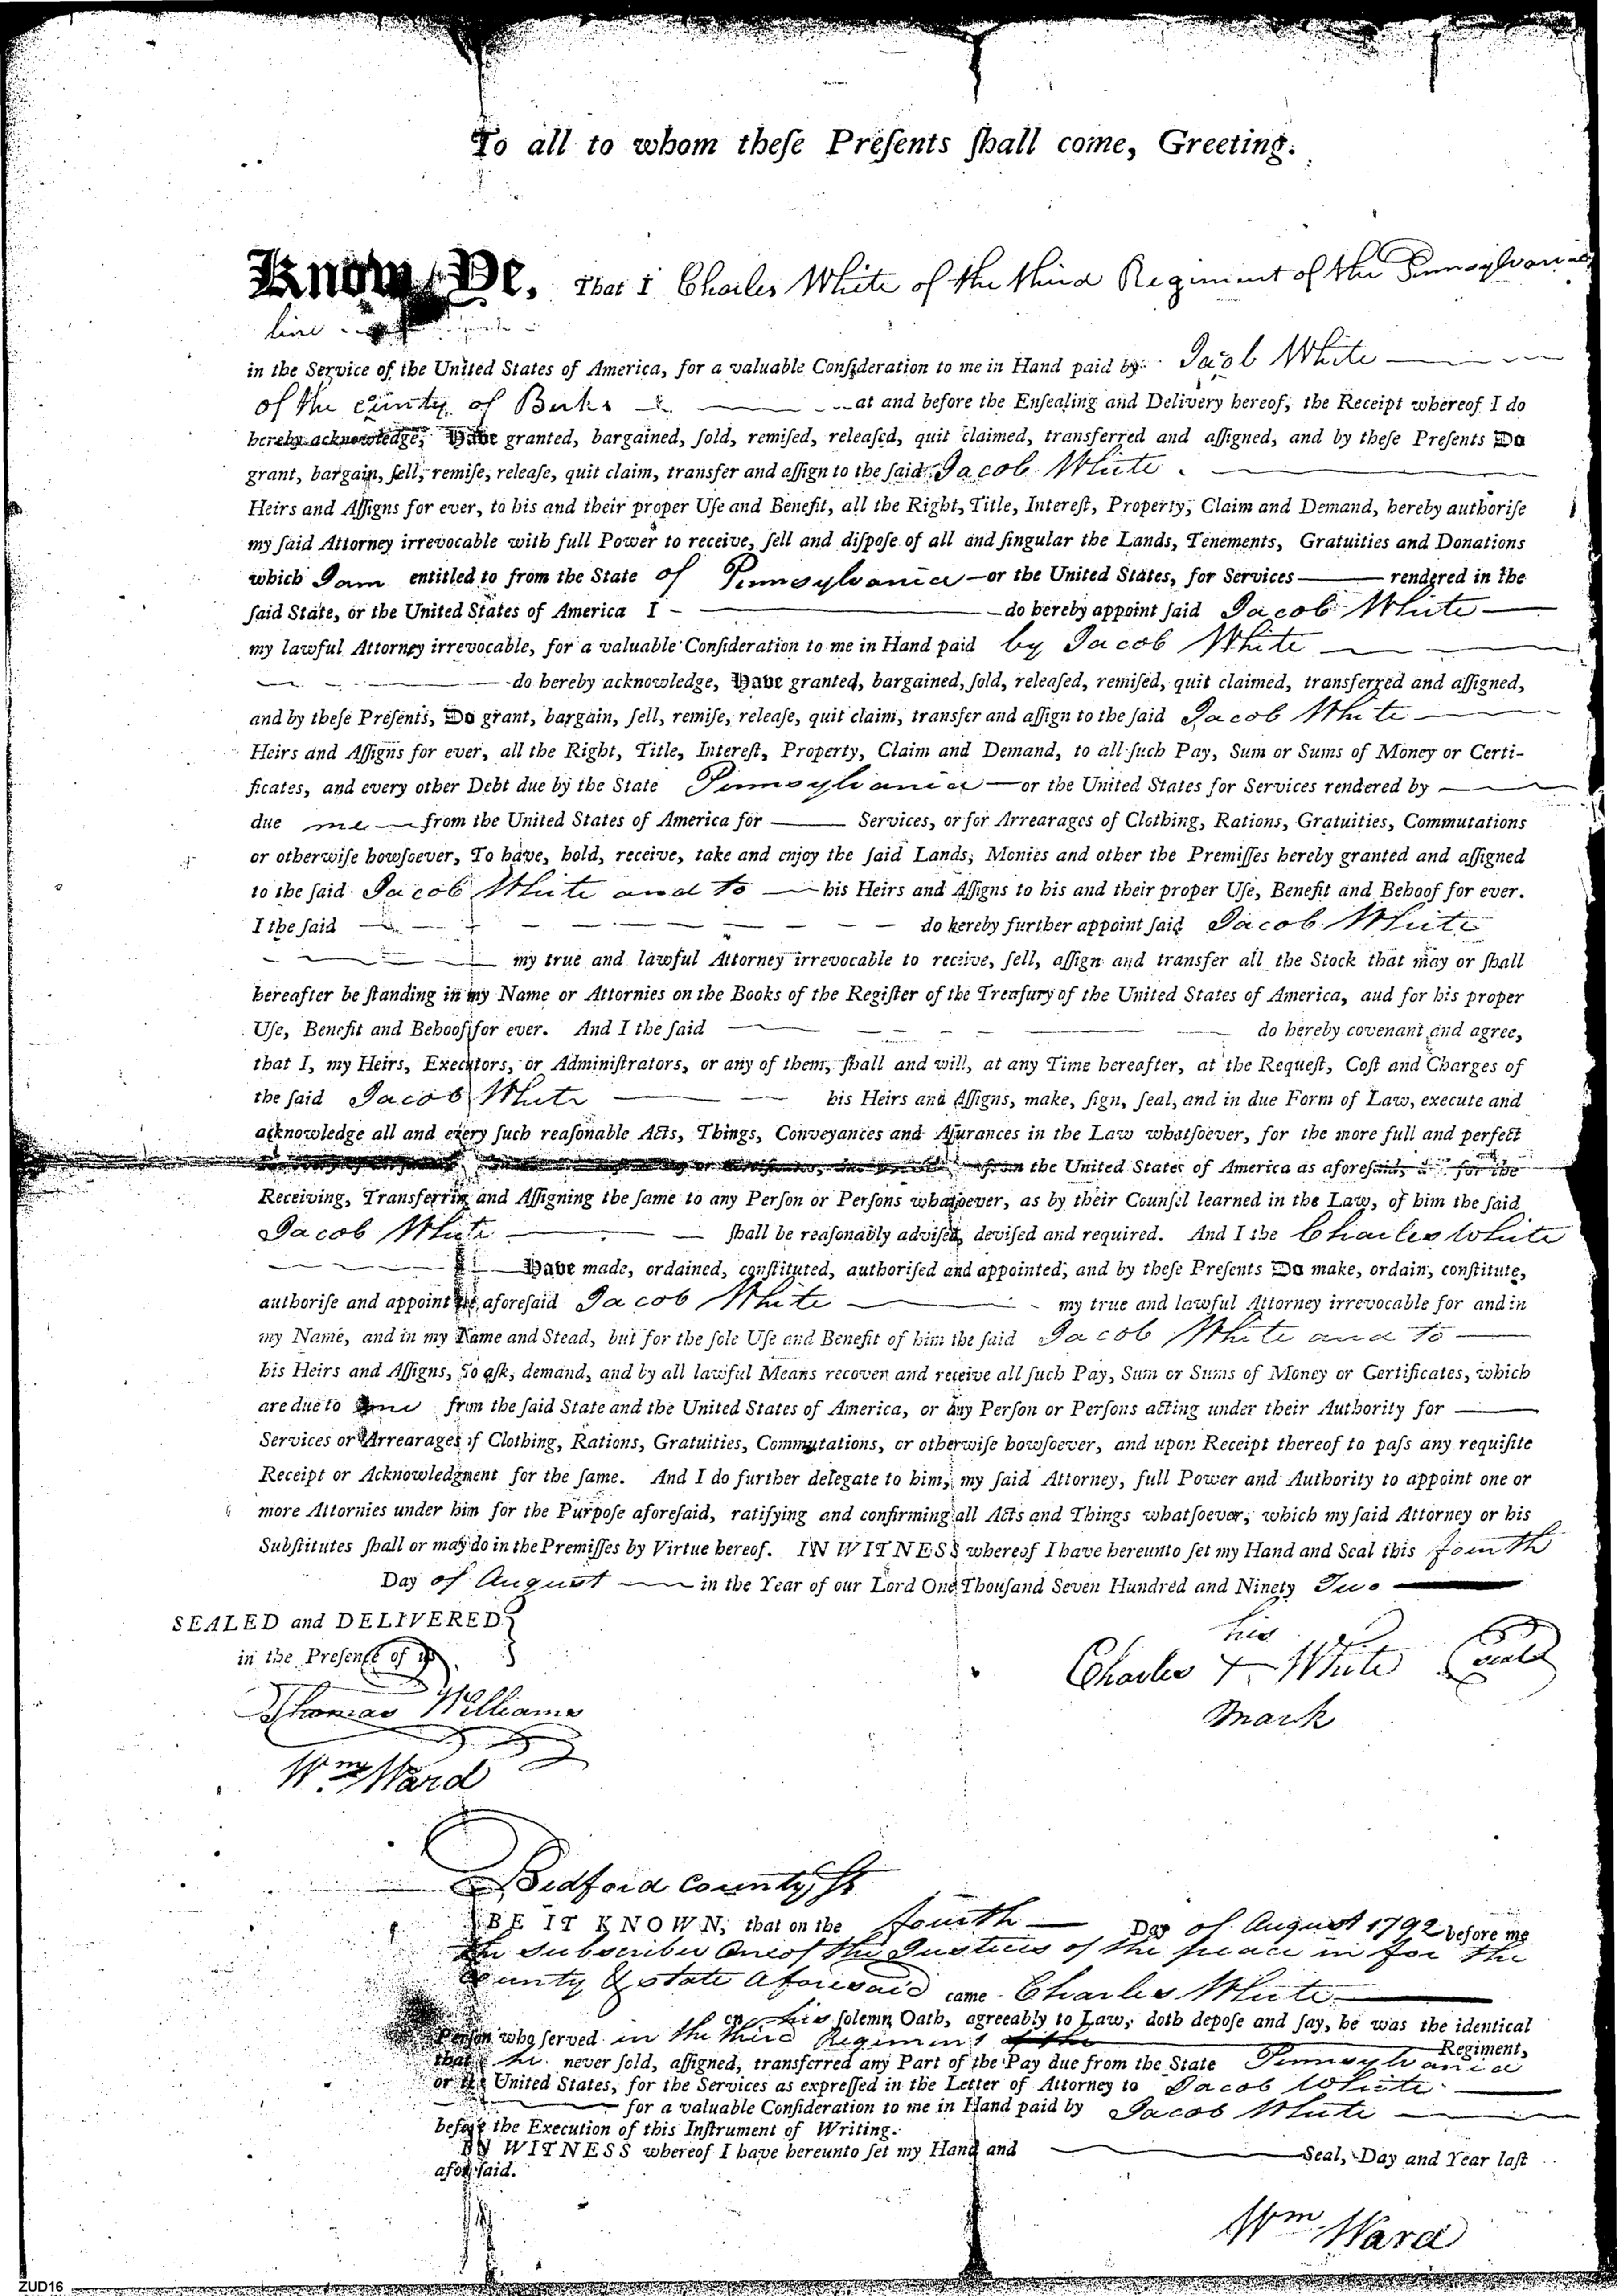 To all to whom theſe Preſents ſhall come, Greeting.
Know Ye, That I Charles White of the third Regiment of the Pennsylvania
line
in the Service of the United States of America, for a valuable Conſideration to me in Hand paid by Jacob White
of the County of Berks at and before the Enſealing and Delivery hereof, the Receipt whereof I do
hereby acknowledge, Have granted, bargained, ſold, remiſed, releaſed, quit claimed, transferred and aſſigned, and by theſe Preſents Do
grant, bargain, ſell, remiſe, releaſe, quit claim, transfer and aſſign to the ſaid Jacob White
Heirs and Aſſigns for ever, to his and their proper Uſe and Benefit, all the Right, Title, Intereſt, Property, Claim and Demand, hereby authoriſe
my ſaid Attorney irrevocable with full Power to receive, ſell and diſpoſe of all and ſingular the Lands, Tenements, Gratuities and Donations
which I am entitled to from the State of Pennsylvania — or the United States, for Services — rendered in the
ſaid State, or the United States of America I — do hereby appoint ſaid Jacob White —
my lawful Attorney irrevocable, for a valuable Conſideration to me in Hand paid by Jacob White —
— do hereby acknowledge, Have granted, bargained, ſold, releaſed, remiſed, quit claimed, transferred and aſſigned,
and by theſe Preſents, Do grant, bargain, ſell, remiſe, releaſe, quit claim, transfer and aſſign to the ſaid Jacob White —
Heirs and Aſſigns for ever, all the Right, Title, Intereſt, Property, Claim and Demand, to all ſuch Pay, Sum or Sums of Money or Certi-
ficates, and every other Debt due by the State Pennsylvania — or the United States for Services rendered by —
due me — from the United States of America for — Services, or for Arrearages of Clothing, Rations, Gratuities, Commutations
or otherwiſe howſoever, To have, hold, receive, take and enjoy the ſaid Lands, Monies and other the Premiſſes hereby granted and aſſigned
to the ſaid Jacob White and to — his Heirs and Aſſigns to his and their proper Uſe, Benefit and Behoof for ever.
I the ſaid — do hereby further appoint ſaid Jacob White
— my true and lawful Attorney irrevocable to receive, ſell, aſſign and transfer all the Stock that may or ſhall
hereafter be ſtanding in my Name or Attornies on the Books of the Regiſter of the Treaſury of the United States of America, aud for his proper
Uſe, Benefit and Behoof for ever. And I the ſaid — do hereby covenant and agree,
that I, my Heirs, Executors, or Adminiſtrators, or any of them, ſhall and will, at any Time hereafter, at the Requeſt, Coſt and Charges of
the ſaid Jacob White — his Heirs and Aſſigns, make, ſign, ſeal, and in due Form of Law, execute and
acknowledge all and every ſuch reaſonable Acts, Things, Conveyances and Aſſurances in the Law whatſoever, for the more full and perfect
from the United States of America as aforeſaid, for the
Receiving, Transferring and Aſſigning the ſame to any Perſon or Perſons whatſoever, as by their Counſel learned in the Law, of him the ſaid
Jacob White — ſhall be reaſonably adviſed, deviſed and required. And I the Charles White
— Have made, ordained, conſtituted, authoriſed and appointed, and by theſe Preſents Do make, ordain, conſtitute,
authoriſe and appoint the aforeſaid Jacob White — my true and lawful Attorney irrevocable for and in
my Name, and in my Name and Stead, but for the ſole Uſe and Benefit of him the ſaid Jacob White and to —
his Heirs and Aſſigns, to aſk, demand, and by all lawful Means recover and receive all ſuch Pay, Sum or Sums of Money or Certificates, which
are due to me from the ſaid State and the United States of America, or any Perſon or Perſons acting under their Authority for —
Services or Arrearages of Clothing, Rations, Gratuities, Commutations, or otherwiſe howſoever, and upon Receipt thereof to paſs any requiſite
Receipt or Acknowledgment for the ſame. And I do further delegate to him, my ſaid Attorney, full Power and Authority to appoint one or
more Attornies under him for the Purpoſe aforeſaid, ratifying and confirming all Acts and Things whatſoever, which my ſaid Attorney or his
Subſtitutes ſhall or may do in the Premiſſes by Virtue hereof. IN WITNESS whereof I have hereunto ſet my Hand and Seal this fourth
Day of August — in the Year of our Lord One Thouſand Seven Hundred and Ninety Two —
SEALED and DELIVERED
in the Preſence of us
his
Charles + White Seal
mark
Thomas Williams
Wm Ward
Bedford County Ss
BE IT KNOWN, that on the fourth — Day of August 1792 before me
the subscriber One of the Justices of the peace in for the
County & state aforesaid came Charles White —
on his ſolemn Oath, agreeably to Law, doth depoſe and ſay, he was the identical
Perſon who ſerved in the third Regiment — Regiment,
that he never ſold, aſſigned, transferred any Part of the Pay due from the State Pennsylvania
or the United States, for the Services as expreſſed in the Letter of Attorney to Jacob White —
— for a valuable Conſideration to me in Hand paid by Jacob White —
before the Execution of this Inſtrument of Writing.
IN WITNESS whereof I have hereunto ſet my Hand and — Seal, Day and Year laſt
aforeſaid.
Wm Ward
ZUD16